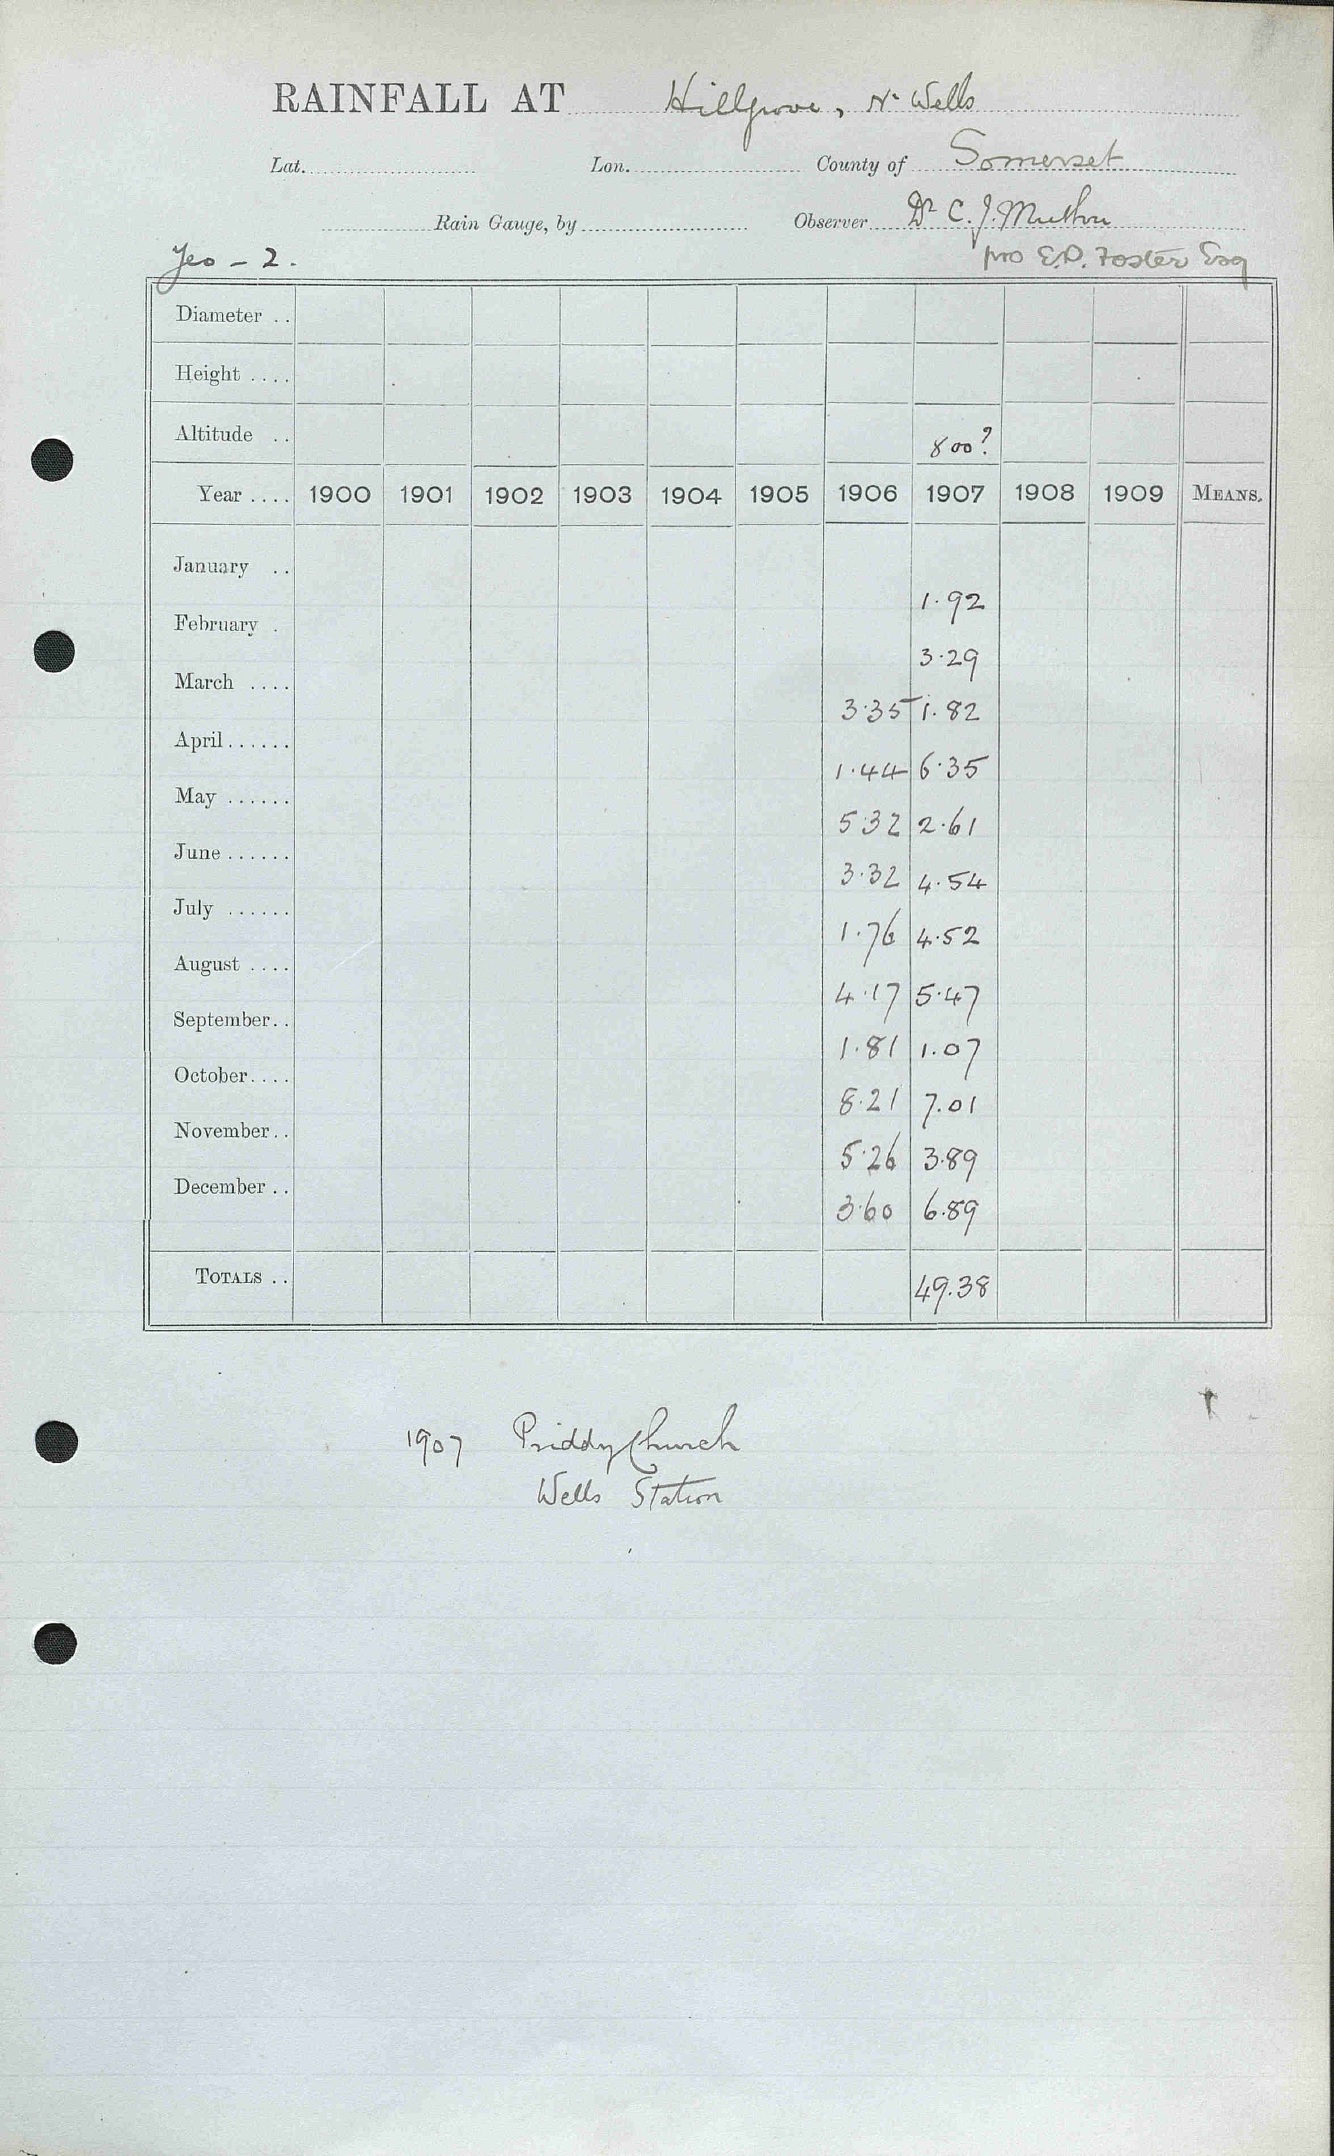 RAINFALL AT Hillgrove, Nr Wells
Lat. Lon. County of Somerset
Rain Gauge, by Observer Dr C. J. Muthu
Yeo - 2. pro E.D. Foster Esq
Diameter ..
Height ....
Altitude .. 800?
Year .... 1900 1901 1902 1903 1904 1905 1906 1907 1908 1909 MEANS.
January .. 1.92
February . 3.29
March .... 3.35 1.82
April...... 1.44 6.35
May ...... 5.32 2.61
June ...... 3.32 4.54
July ...... 1.76 4.52
August .... 4.17 5.47
September.. 1.81 1.07
October.... 8.21 7.01
November.. 5.26 3.89
December .. 3.60 6.89
TOTALS .. 49.38
1907 Priddy Church
Wells Station